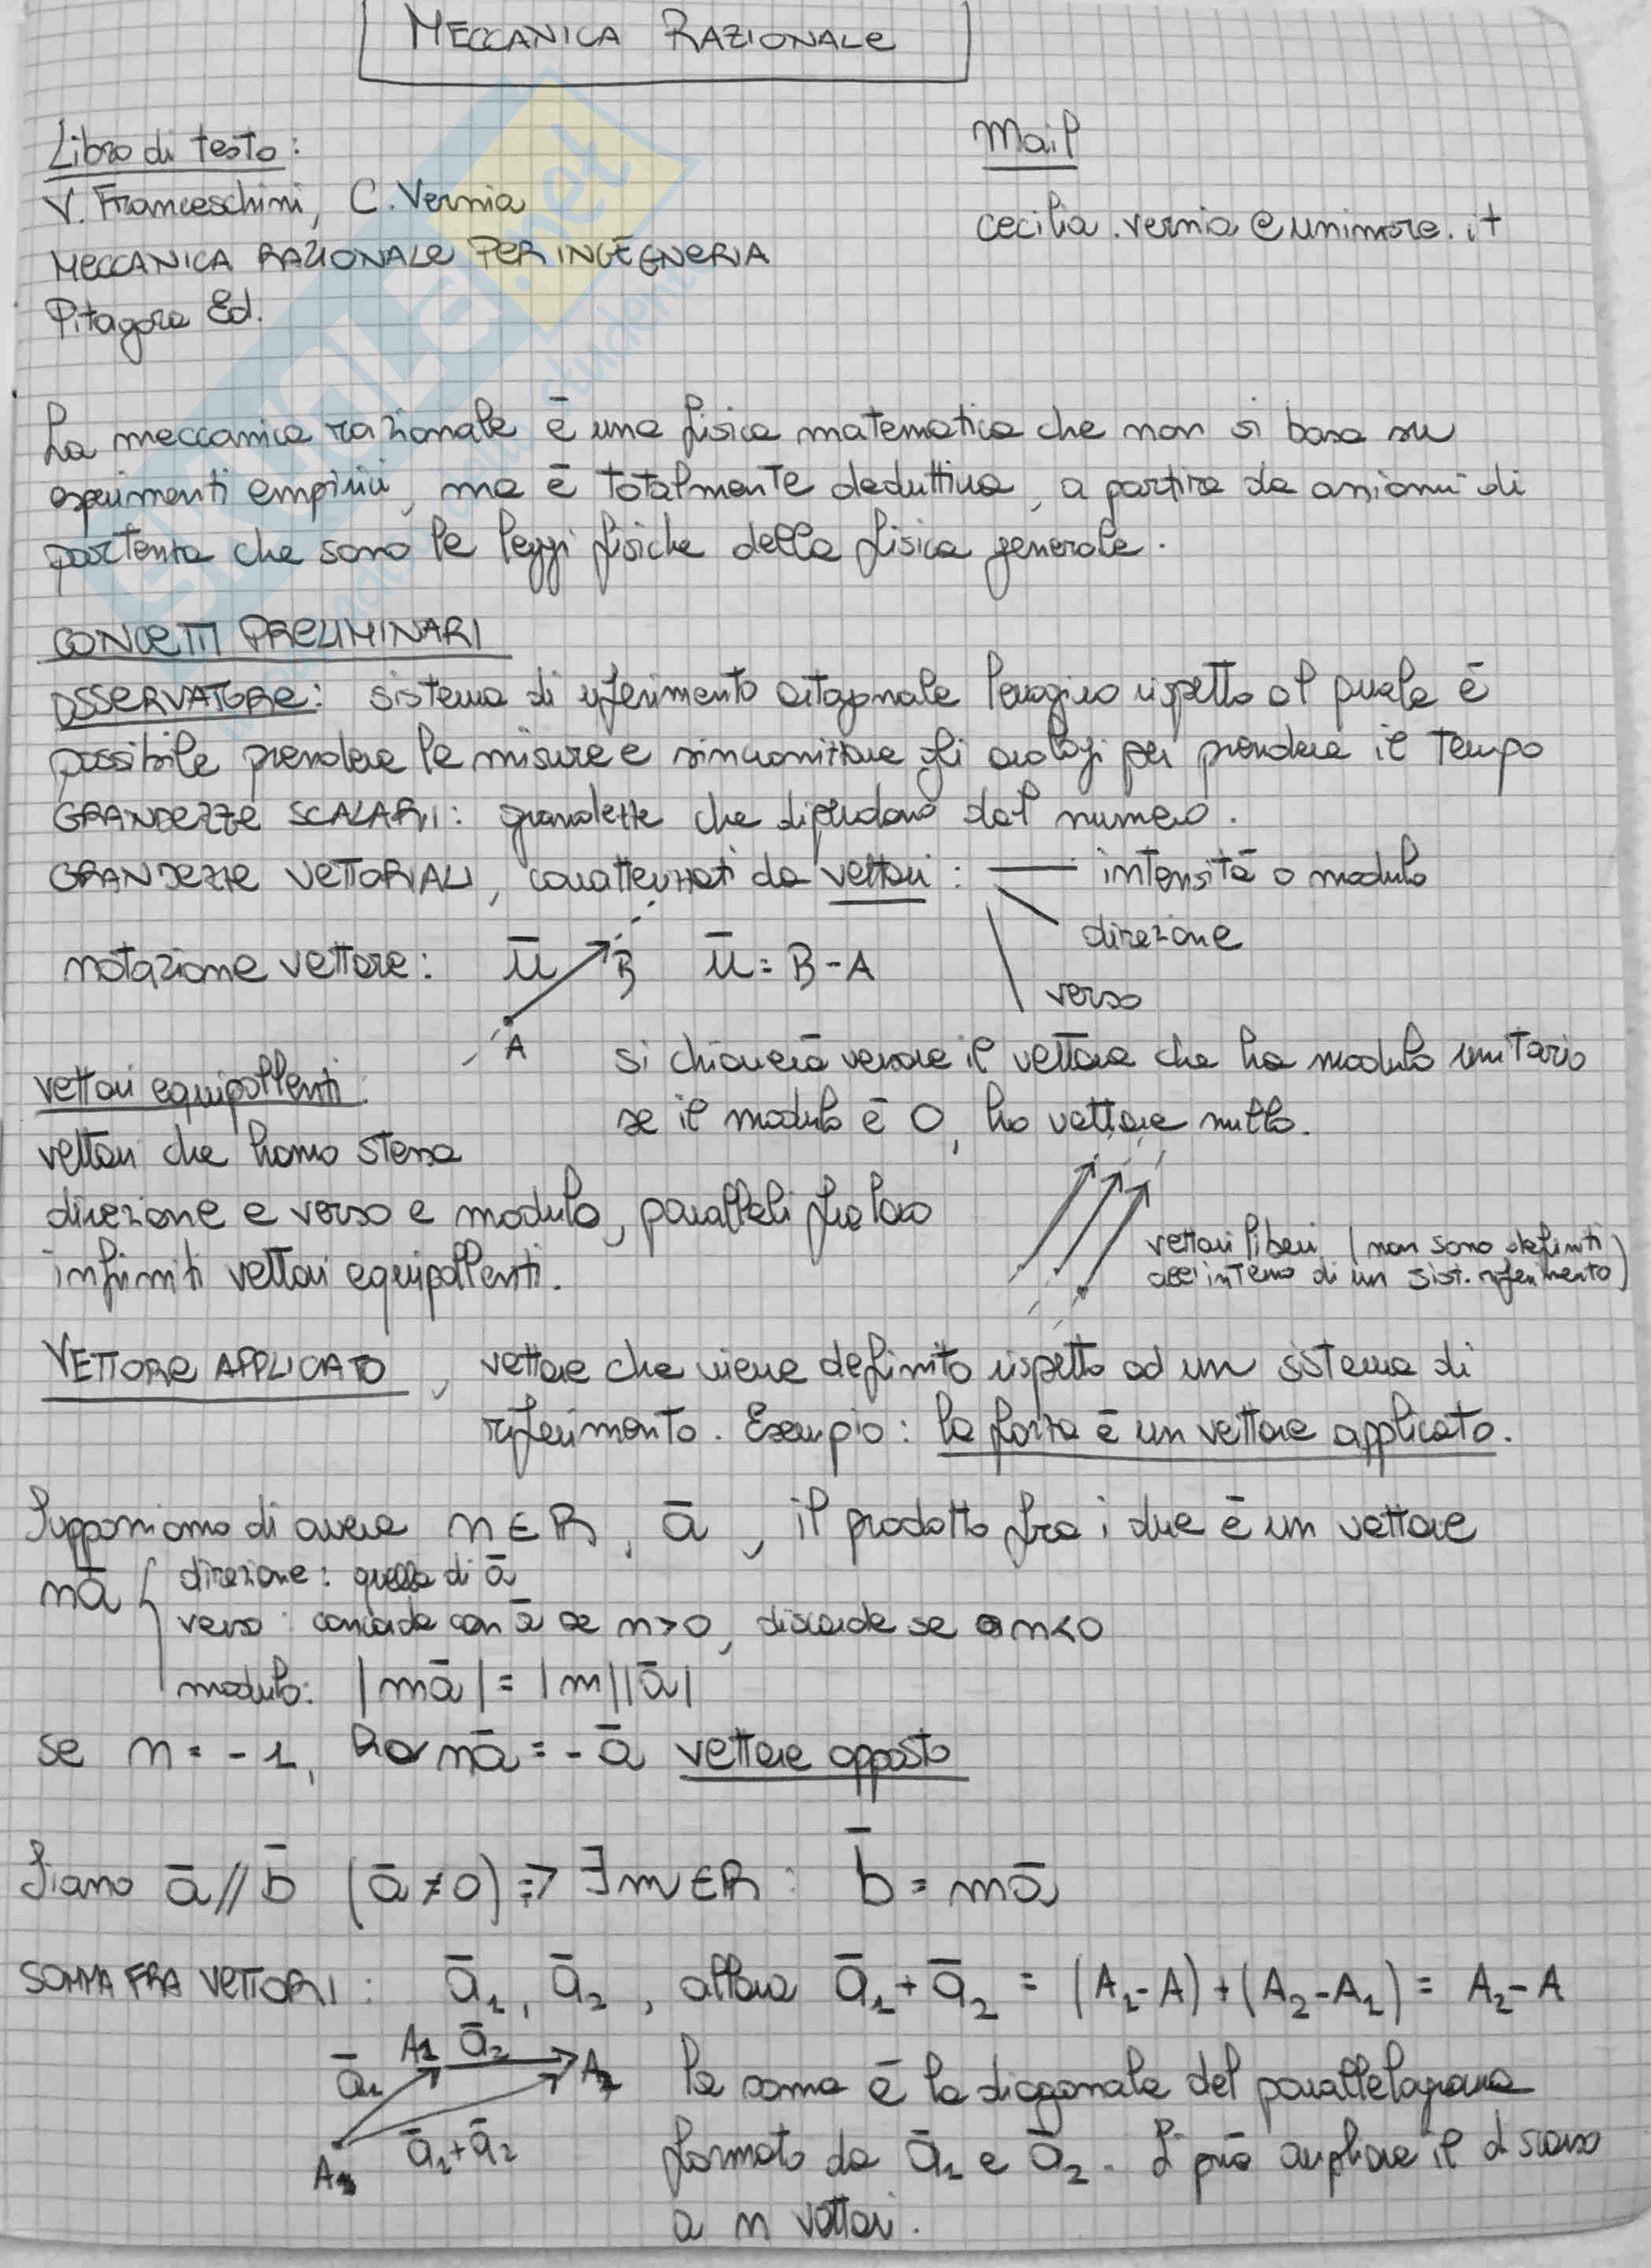 MECCANICA RAZIONALE
Libro di testo:
V. Franceschini, C. Vernia
MECCANICA RAZIONALE PER INGEGNERIA
Pitagora Ed.
Mail
cecilia.vernia@unimore.it
SKUOLA.net
La meccanica razionale è una fisica matematica che non si basa su
esperimenti empirici, ma è totalmente deduttiva, a partire da assiomi di
partenza che sono le leggi fisiche della fisica generale.
CONCETTI PRELIMINARI
OSSERVATORE: sistema di riferimento ortogonale levogiro rispetto al quale è
possibile prendere le misure e sincronizzare gli orologi per prendere il tempo
GRANDEZZE SCALARI: grandezze che dipendono dal numero.
GRANDEZZE VETTORIALI, caratterizzati da vettori: intensità o modulo
direzione
verso
notazione vettore: ū B ū = B-A
A
si chiamerà versore il vettore che ha modulo unitario
se il modulo è 0, ho vettore nullo.
vettori equipollenti:
vettori che hanno stessa
direzione e verso e modulo, paralleli fra loro
infiniti vettori equipollenti.
vettori liberi (non sono definiti
all'interno di un sist. riferimento)
VETTORE APPLICATO, vettore che viene definito rispetto ad un sistema di
riferimento. Esempio: la forza è un vettore applicato.
Supponiamo di avere m ∈ R, ā, il prodotto fra i due è un vettore
mā { direzione: quella di ā
verso: coincide con ā se m>0, discorde se m<0
modulo: |mā| = |m||ā|
se m = -1, ho mā = -ā vettore opposto
Siano ā // b̄ (ā ≠ 0) => ∃ m ∈ R : b̄ = mā
SOMMA FRA VETTORI: ā₁, ā₂, allora ā₁ + ā₂ = (A₁-A) + (A₂-A₁) = A₂-A
ā₁ A₁ ā₂ A₂
A ā₁+ā₂
la somma è la diagonale del parallelogramma
formato da ā₁ e ā₂. Si può ampliare il discorso
a n vettori.